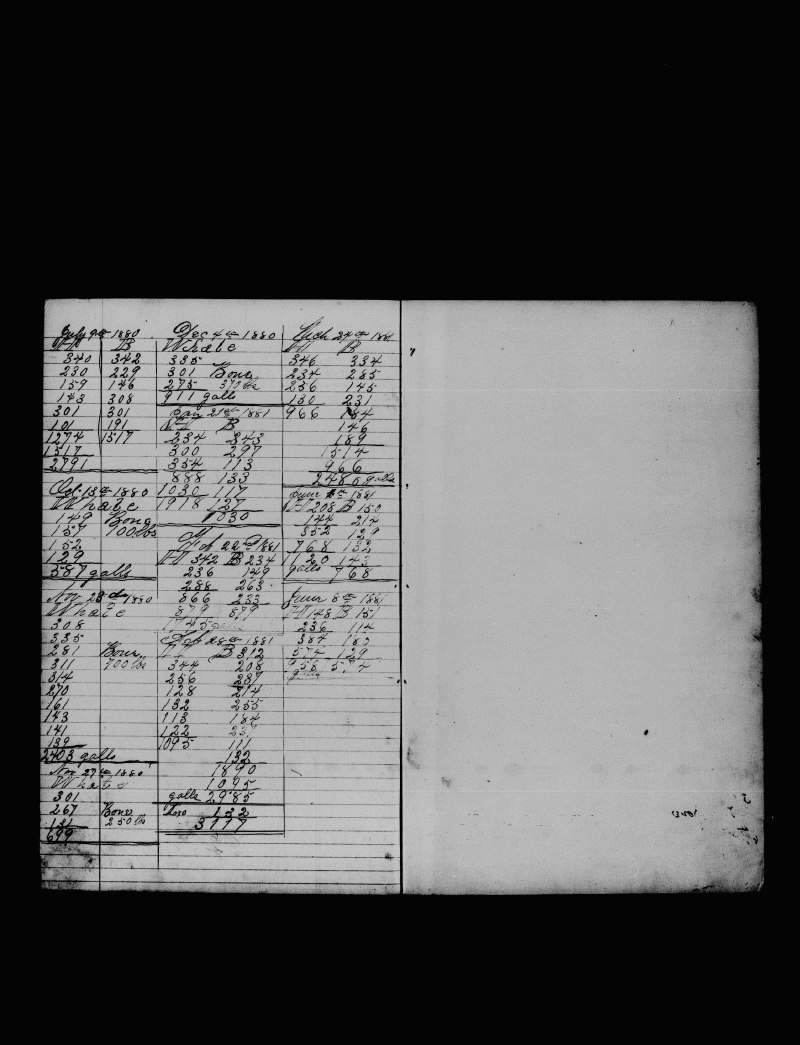 July 9th 1880
H B
340 342
230 229
159 146
143 308
301 301
101 191
1274 1517
1517
2791
Oct. 13th 1880
Whale
149 Bone
157 700 lbs
152
129
587 galls
Nov 23d 1880
Whale
308
335
281 Bone
311 700 lbs
314
270
161
143
141
139
2403 galls
Nov 27th 1880
Whale
301
267 Bone
131 250 lbs
699
Dec 4th 1880
Whale
335
301 Bone
275 370 lbs
911 galls
21st 1881
H B
234 343
300 297
354 113
888 133
1030 117
1918 127
1030
Feb 22d 1881
H 342 B 234
236 149
288 263
866 233
879 879
1745
Feb 28th 1881
H B 312
344 208
256 287
128 214
132 255
113 184
122
1095 111
132
1890
1095
galls 2985
132
3117
Mch 24th 1881
H B
346 334
234 285
256 145
130 231
966 184
146
189
1514
966
2480 galls
June 1881
H 208 B 150
144 214
352 129
768 132
1120 143
galls 768
June 8th 1881
H 148 B 151
236 114
384 180
574 129
958 574
galls